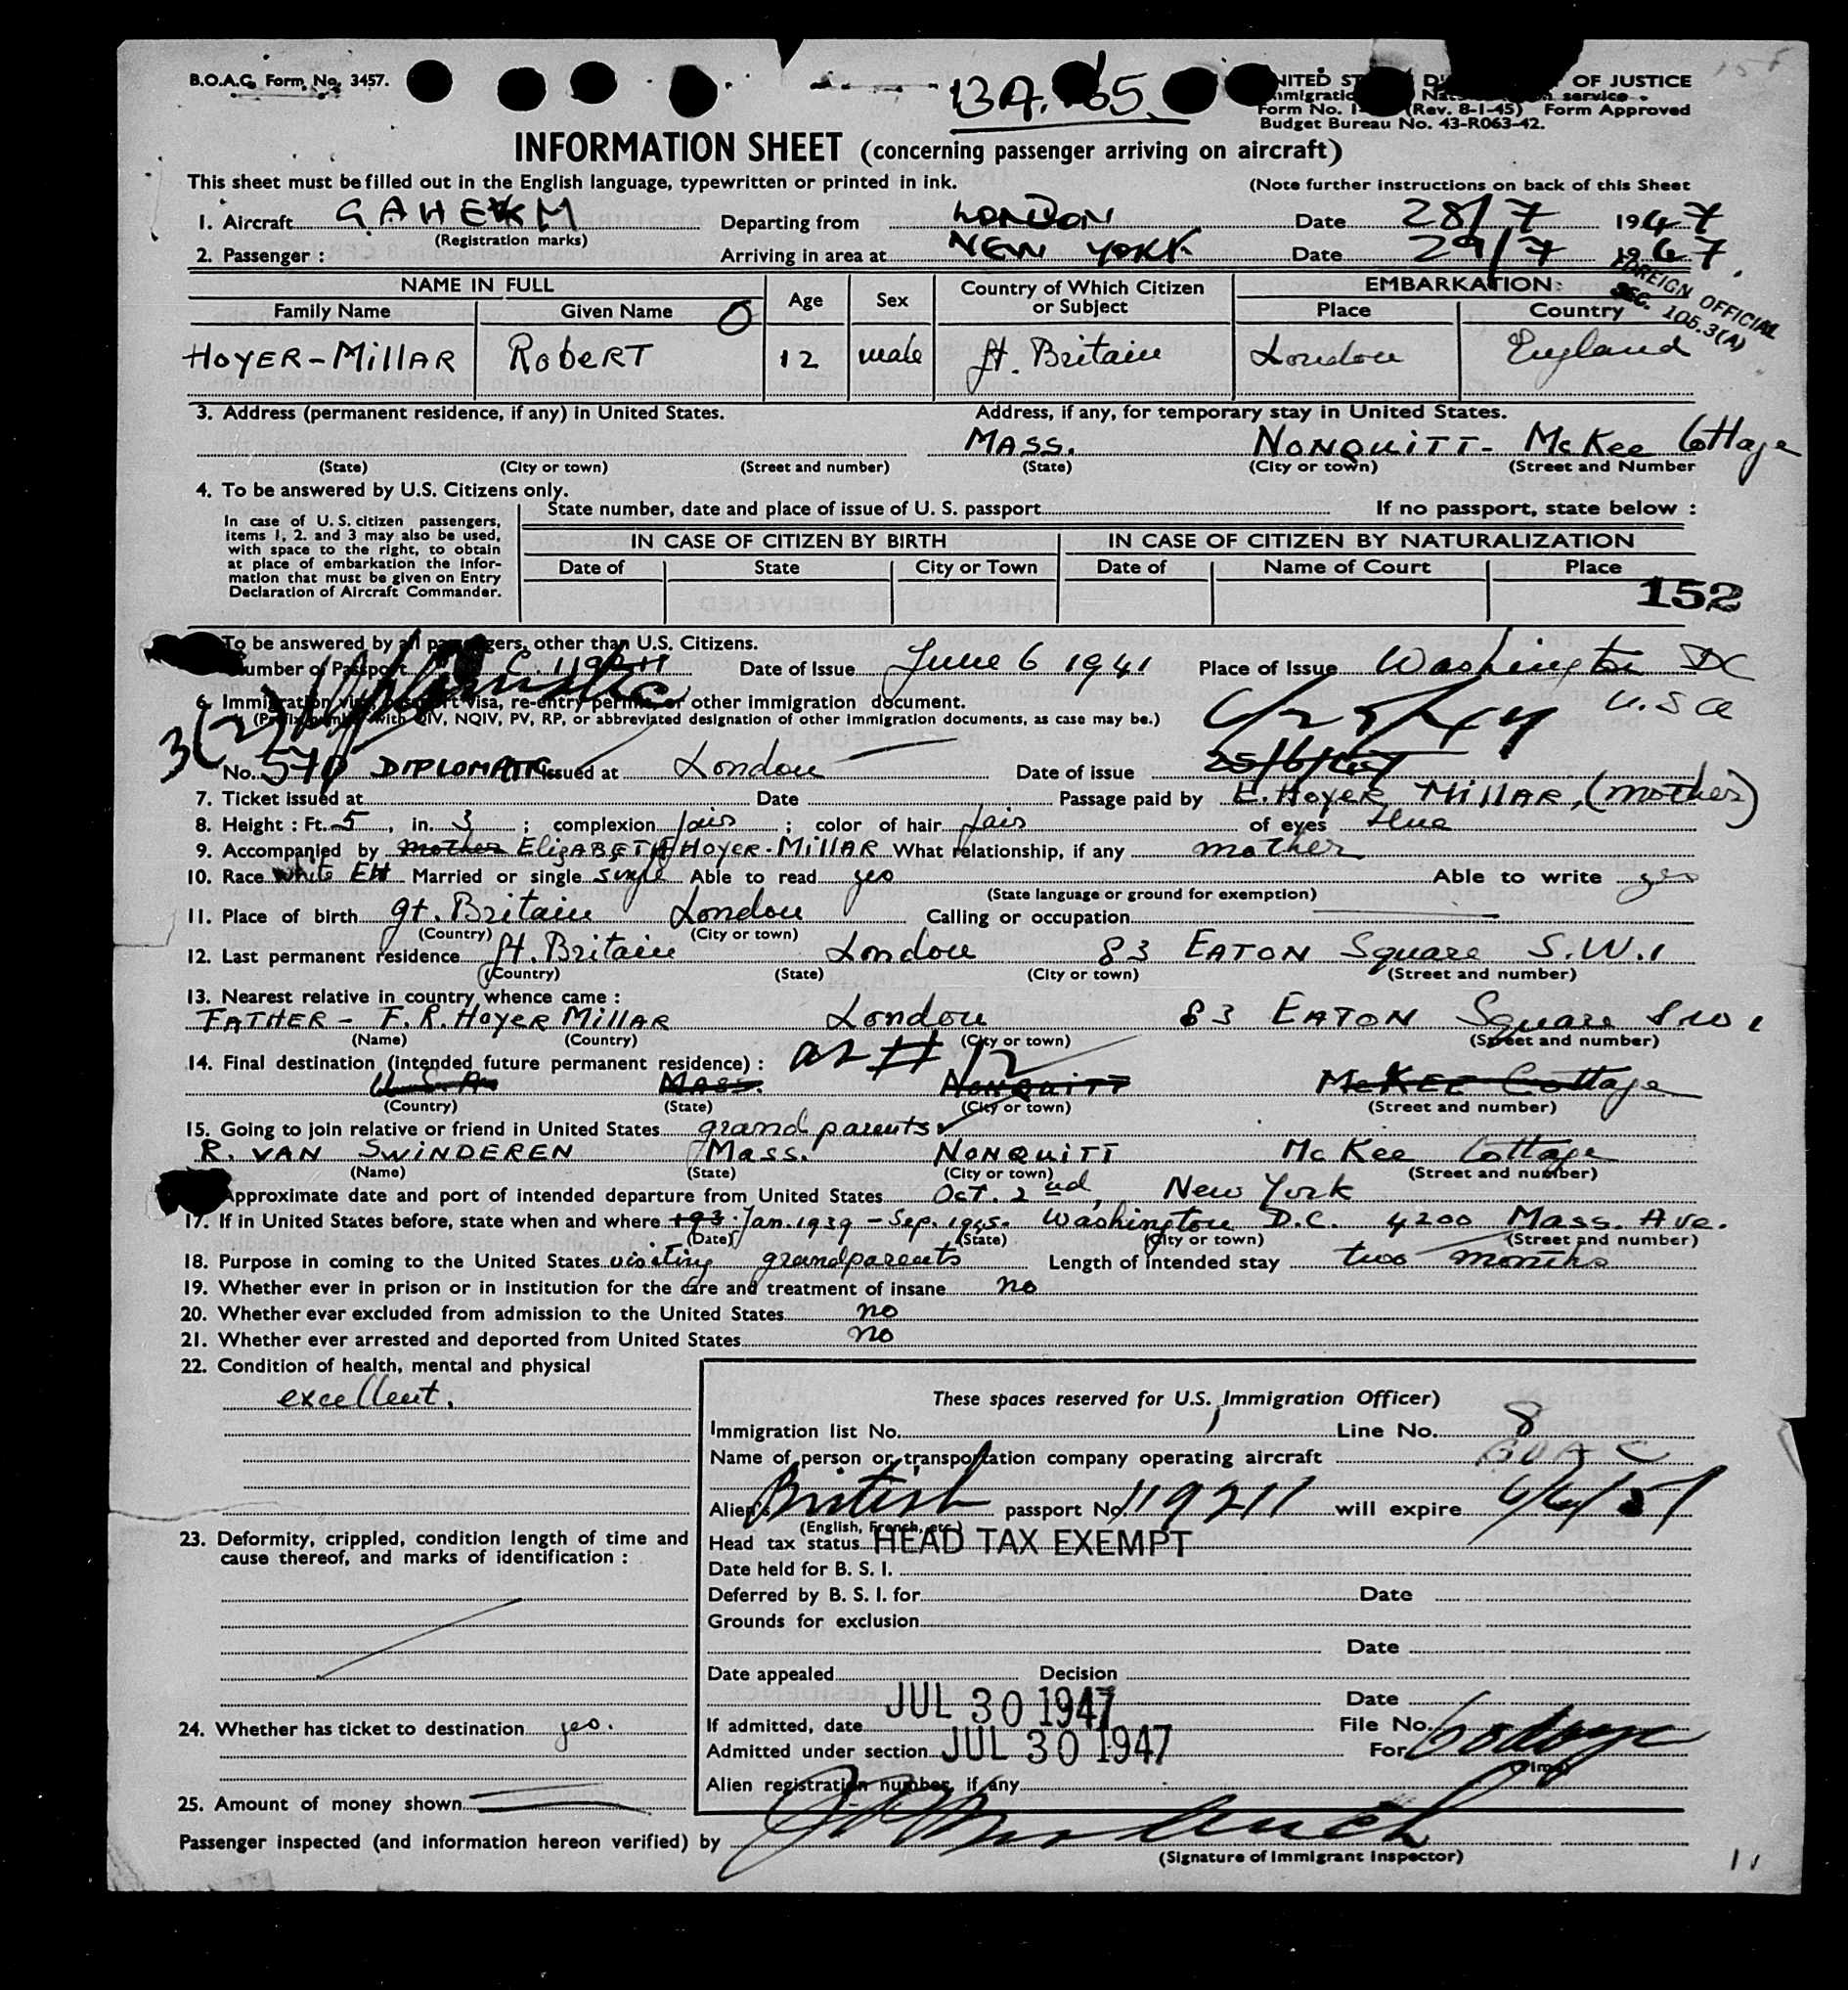 B.O.A.C. Form No. 3457.
OF JUSTICE
service
Form No. (Rev. 8-1-45) Form Approved
Budget Bureau No. 43-R063-42.
INFORMATION SHEET (concerning passenger arriving on aircraft)
This sheet must be filled out in the English language, typewritten or printed in ink. (Note further instructions on back of this Sheet
1. Aircraft Departing from LONDON Date 28/7 1947
(Registration marks)
2. Passenger : Arriving in area at NEW YORK Date 29/7 1947.
FOREIGN OFFICIAL
SEC. 105.3(A)
NAME IN FULL Age Sex Country of Which Citizen or Subject EMBARKATION:
Family Name Given Name Place Country
HOYER-MILLAR ROBERT 12 male Gt. Britain London England
3. Address (permanent residence, if any) in United States. Address, if any, for temporary stay in United States.
MASS. NONQUITT- McKee Cottage
(State) (City or town) (Street and number) (State) (City or town) (Street and Number
4. To be answered by U.S. Citizens only.
State number, date and place of issue of U. S. passport If no passport, state below :
In case of U. S. citizen passengers,
items 1, 2. and 3 may also be used,
with space to the right, to obtain
at place of embarkation the Infor-
mation that must be given on Entry
Declaration of Aircraft Commander.
IN CASE OF CITIZEN BY BIRTH IN CASE OF CITIZEN BY NATURALIZATION
Date of State City or Town Date of Name of Court Place
152
To be answered by all passengers, other than U.S. Citizens.
Number of Passport Date of Issue June 6 1941 Place of Issue Washington DC
U.S.A
6. Immigration visa, passport visa, re-entry permit, or other immigration document.
(Prefix number with QIV, NQIV, PV, RP, or abbreviated designation of other immigration documents, as case may be.)
3(2)
No. 570 DIPLOMATIC Issued at London Date of issue 25/6/47
7. Ticket issued at Date Passage paid by E. HOYER MILLAR, (mother)
8. Height : Ft. 5, in. 3 ; complexion fair ; color of hair fair of eyes blue
9. Accompanied by mother ELIZABETH HOYER-MILLAR What relationship, if any mother
10. Race White EH Married or single single Able to read yes Able to write yes
(State language or ground for exemption)
11. Place of birth gt. Britain London Calling or occupation
(Country) (City or town)
12. Last permanent residence Gt. Britain London 83 EATON Square S.W.1
(Country) (State) (City or town) (Street and number)
13. Nearest relative in country whence came :
FATHER - F. R. HOYER MILLAR London 83 EATON Square SW1
(Name) (Country) (City or town) (Street and number)
14. Final destination (intended future permanent residence) : as # 12
U.S.A. MASS. NONQUITT McKEE Cottage
(Country) (State) (City or town) (Street and number)
15. Going to join relative or friend in United States grandparents
R. VAN SWINDEREN Mass. NONQUITT McKee Cottage
(Name) (State) (City or town) (Street and number)
Approximate date and port of intended departure from United States Oct. 2nd, New York
17. If in United States before, state when and where 193 Jan. 1939 - Sep. 1945. Washington D.C. 4200 Mass. Ave.
(Date) (State) (City or town) (Street and number)
18. Purpose in coming to the United States visiting grandparents Length of intended stay two months
19. Whether ever in prison or in institution for the care and treatment of insane no
20. Whether ever excluded from admission to the United States no
21. Whether ever arrested and deported from United States no
22. Condition of health, mental and physical
excellent.
23. Deformity, crippled, condition length of time and
cause thereof, and marks of identification :
24. Whether has ticket to destination yes.
25. Amount of money shown
These spaces reserved for U.S. Immigration Officer)
Immigration list No. 1 Line No. 8
Name of person or transportation company operating aircraft BOAC
Alien's British passport No. 119211 will expire 6/6/51
(English, French, etc.)
Head tax status HEAD TAX EXEMPT
Date held for B. S. I.
Deferred by B. S. I. for Date
Grounds for exclusion
Date
Date appealed Decision
Date
If admitted, date JUL 30 1947 File No.
Admitted under section JUL 30 1947 For
(Time)
Alien registration number, if any
Passenger inspected (and information hereon verified) by
(Signature of Immigrant Inspector)